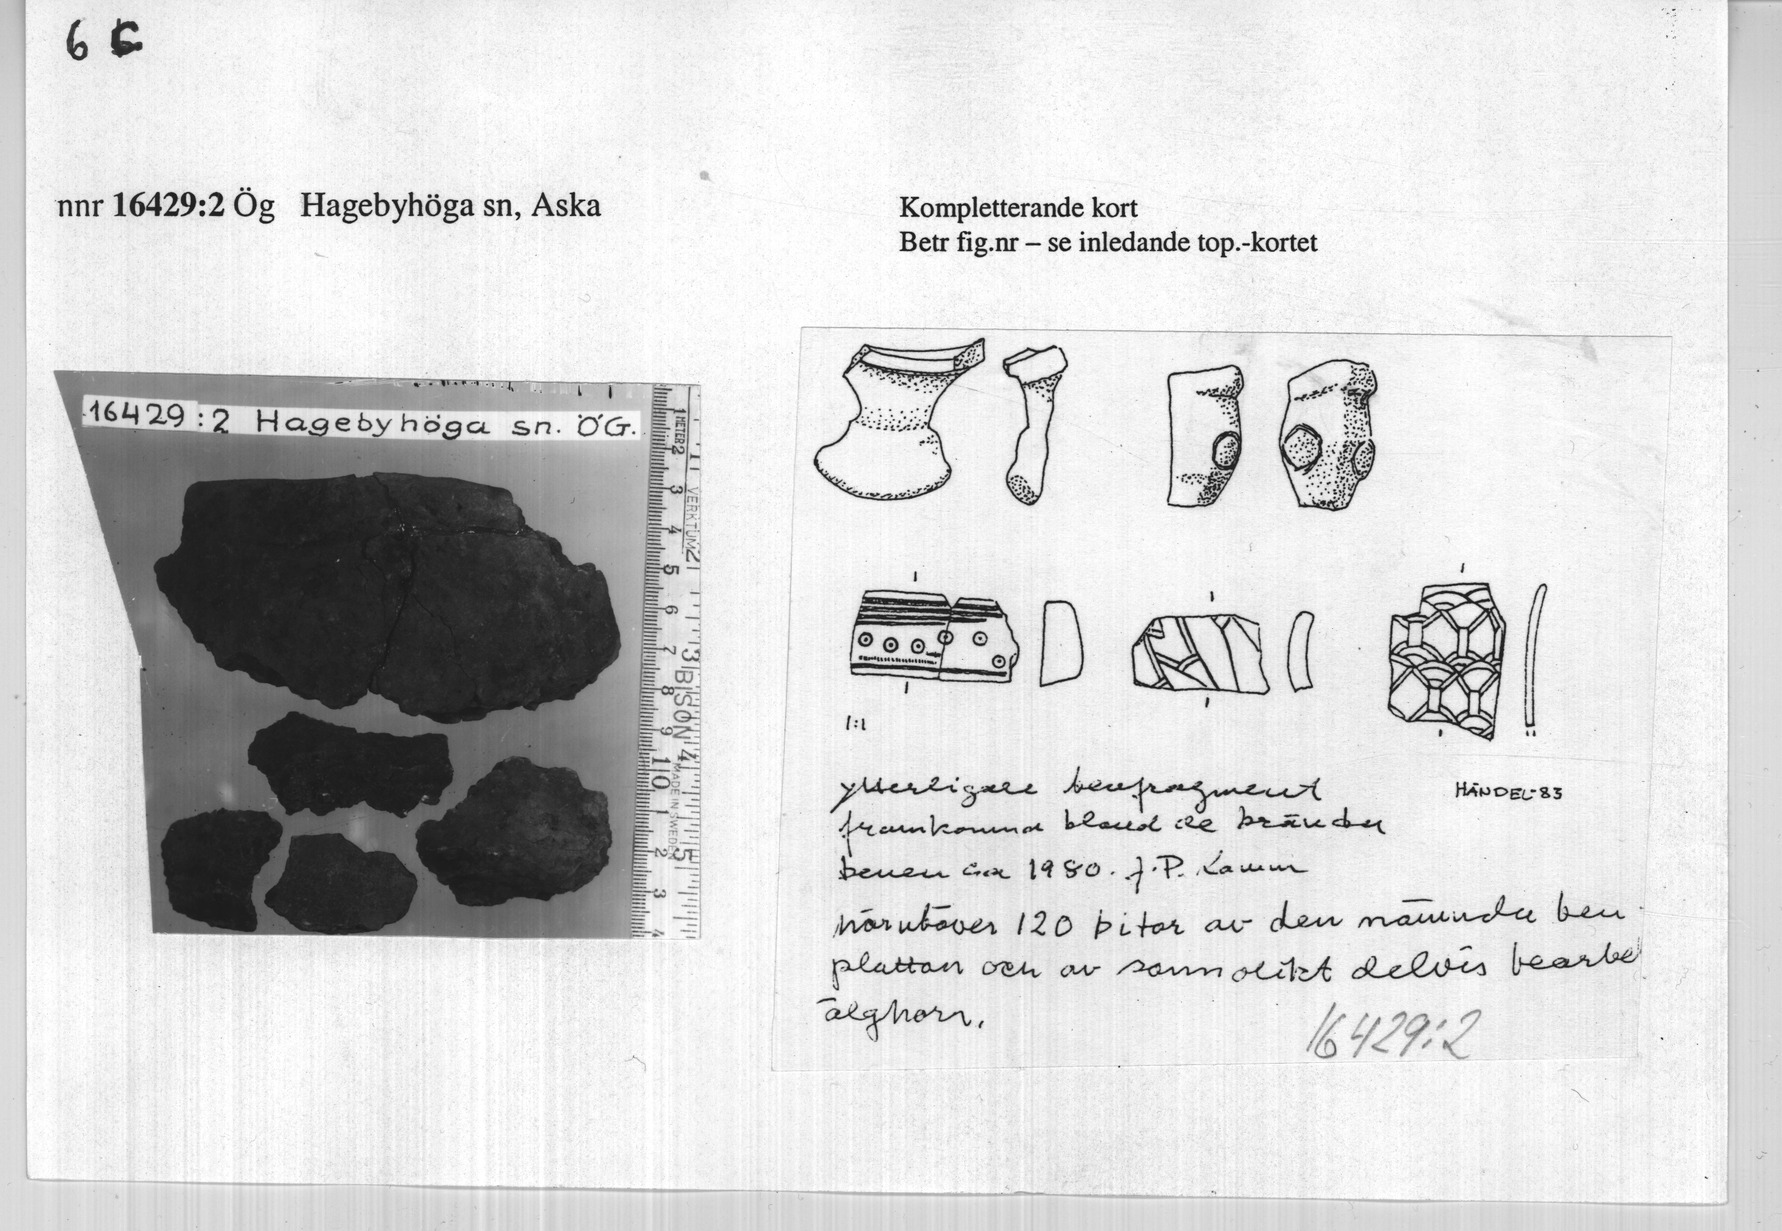 6
nnr 16429:2 Ög Hagebyhöga sn, Aska
Kompletterande kort
Betr fig.nr – se inledande top.-kortet
16429:2 Hagebyhöga sn. ÖG.
1 METER 2 3 4 5 6 7 8 9 10 1 2 3 4
1 VERKTUM 2 3 BISON 4 5
MADE IN SWEDEN
1:1
HÄNDEL-83
ytterligare benfragment
framkomna bland de brända
benen ca 1980. J.P. Lamm
Härutöver 120 bitar av den nämnda ben
plattan och av sannolikt delvis bearbe
älghorn.
16429:2